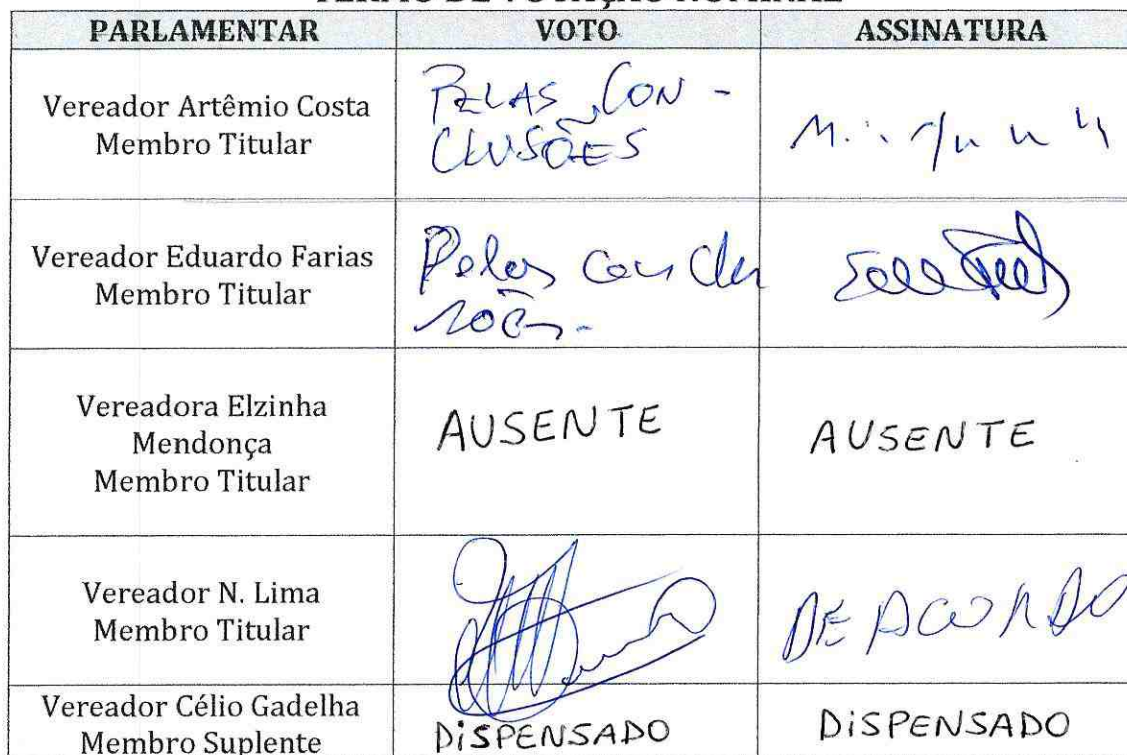 TERMO DE VOTAÇÃO NOMINAL
PARLAMENTAR VOTO ASSINATURA
Vereador Artêmio Costa
Membro Titular
PELAS CON-
CLUSÕES
Vereador Eduardo Farias
Membro Titular
Pelas conclu
sões-
Vereadora Elzinha
Mendonça
Membro Titular
AUSENTE
AUSENTE
Vereador N. Lima
Membro Titular
DE ACORDO
Vereador Célio Gadelha
Membro Suplente
DISPENSADO
DISPENSADO